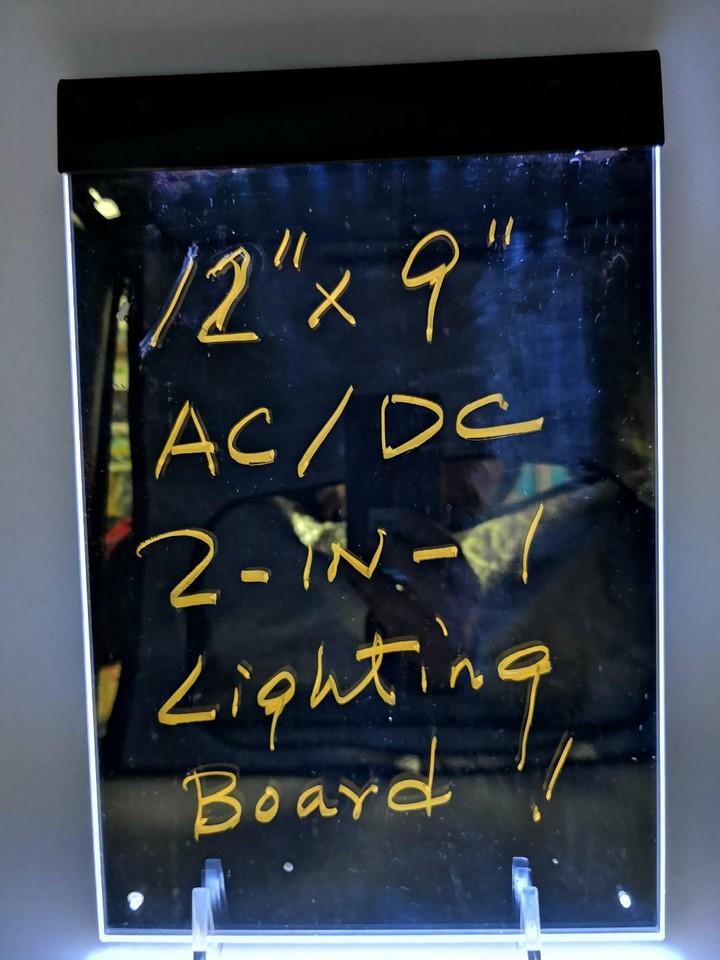 12" x 9"
AC/DC
2-IN-1
Lighting
Board !